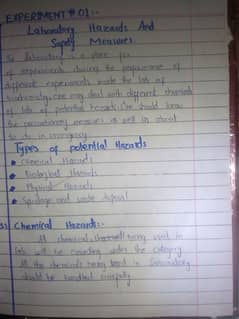 EXPERIMENT # 01:-
Laboratory Hazards And
Safety Measures.
The laboratory is a place for
of experiments. During the performance of
different experiments inside the lab of
biochemistry, one may deal with different chemicals
of lab potential hazards. One should know
the precautionary measures as well as about
to do in emergency.
Types of potential Hazards
Chemical Hazards
Biological Hazards
Physical Hazards
Spillage and waste disposal
Chemical Hazards:-
All chemicals being used in
lab will be under the category.
All the chemicals being used in laboratory
should be handled carefully